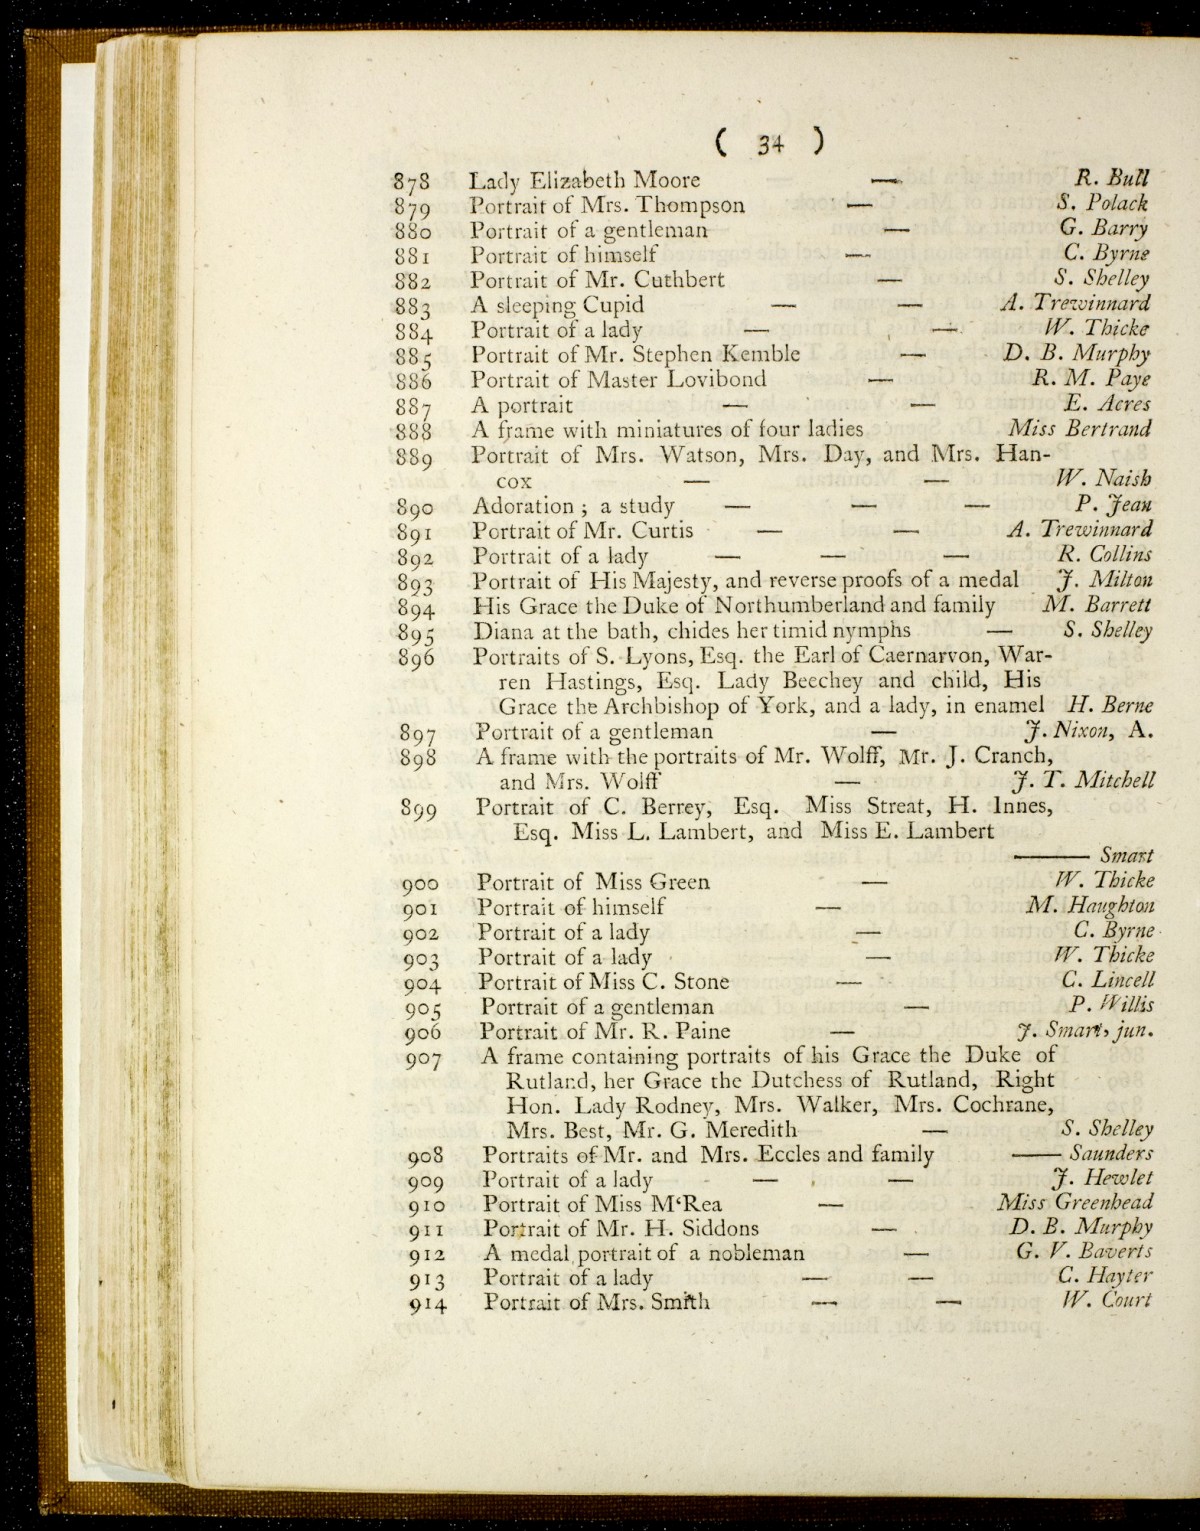 ( 34 )
878 Lady Elizabeth Moore — R. Bull
879 Portrait of Mrs. Thompson — S. Polack
880 Portrait of a gentleman — G. Barry
881 Portrait of himself — C. Byrne
882 Portrait of Mr. Cuthbert — S. Shelley
883 A sleeping Cupid — — A. Trewinnard
884 Portrait of a lady — — W. Thicke
885 Portrait of Mr. Stephen Kemble — D. B. Murphy
886 Portrait of Master Lovibond — R. M. Paye
887 A portrait — — E. Acres
888 A frame with miniatures of four ladies Miss Bertrand
889 Portrait of Mrs. Watson, Mrs. Day, and Mrs. Han-
cox — — W. Naish
890 Adoration ; a study — — — P. Jean
891 Portrait of Mr. Curtis — — A. Trewinnard
892 Portrait of a lady — — — R. Collins
893 Portrait of His Majesty, and reverse proofs of a medal J. Milton
894 His Grace the Duke of Northumberland and family M. Barrett
895 Diana at the bath, chides her timid nymphs — S. Shelley
896 Portraits of S. Lyons, Esq. the Earl of Caernarvon, War-
ren Hastings, Esq. Lady Beechey and child, His
Grace the Archbishop of York, and a lady, in enamel H. Berne
897 Portrait of a gentleman — J. Nixon, A.
898 A frame with the portraits of Mr. Wolff, Mr. J. Cranch,
and Mrs. Wolff — J. T. Mitchell
899 Portrait of C. Berrey, Esq. Miss Streat, H. Innes,
Esq. Miss L. Lambert, and Miss E. Lambert
——— Smart
900 Portrait of Miss Green — W. Thicke
901 Portrait of himself — M. Haughton
902 Portrait of a lady — C. Byrne
903 Portrait of a lady — W. Thicke
904 Portrait of Miss C. Stone — C. Lincell
905 Portrait of a gentleman — P. Willis
906 Portrait of Mr. R. Paine — J. Smart, jun.
907 A frame containing portraits of his Grace the Duke of
Rutland, her Grace the Dutchess of Rutland, Right
Hon. Lady Rodney, Mrs. Walker, Mrs. Cochrane,
Mrs. Best, Mr. G. Meredith — S. Shelley
908 Portraits of Mr. and Mrs. Eccles and family —— Saunders
909 Portrait of a lady — — J. Hewlet
910 Portrait of Miss M‘Rea — Miss Greenhead
911 Portrait of Mr. H. Siddons — D. B. Murphy
912 A medal portrait of a nobleman — G. V. Baverts
913 Portrait of a lady — — C. Hayter
914 Portrait of Mrs. Smith — — W. Court